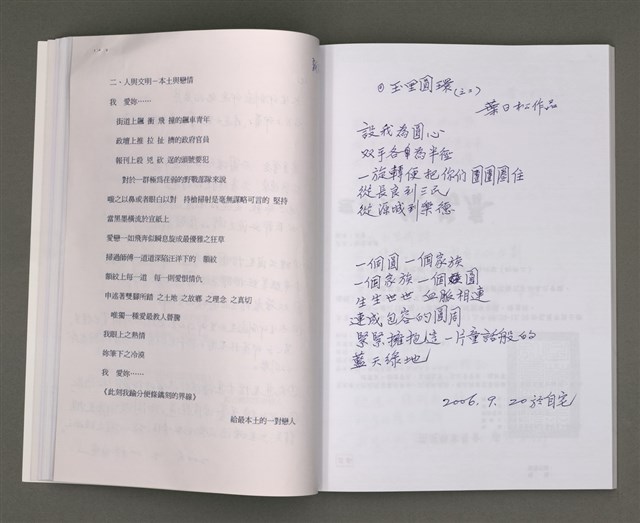 二、人與文明－本土與戀情
我　愛妳……
街道上飆 衝 飛 撞的飆車青年
政壇上推 拉 扯 擠的政府官員
報刊上殺 兇 砍 逞的頭號要犯
對於一群極為茬弱的野戰部隊來說
噓之以鼻或者眼白以對　持槍掃射是毫無謀略可言的 堅持
當黑墨橫流於宣紙上
愛戀一如飛奔似瞬息旋成最優雅之狂草
掃過細縟一道道深陷汪洋下的　顰紋
顰紋上每一道　每一則愛恨情仇
申述著雙腳所踏 之土地 之故鄉 之理念 之真切
唯獨一種愛最教人聲攏
我眼上之熱情
妳筆下之冷漠
我　愛妳……
《此刻我鑰分便條鐫刻的界線》
給最本土的一對戀人
◎玉里圓環(三口)
葉日松作品
設我為圓心
双手各自為半徑
一旋轉便把你們圈圈圈住
從長良到三民
從源城到樂德
一個圓一個家族
一個家族一個圓
生生世世 血脈相連
連成包容的圓周
緊緊擁抱這一片童話般的
藍天綠地
2006. 9. 20 於自宅